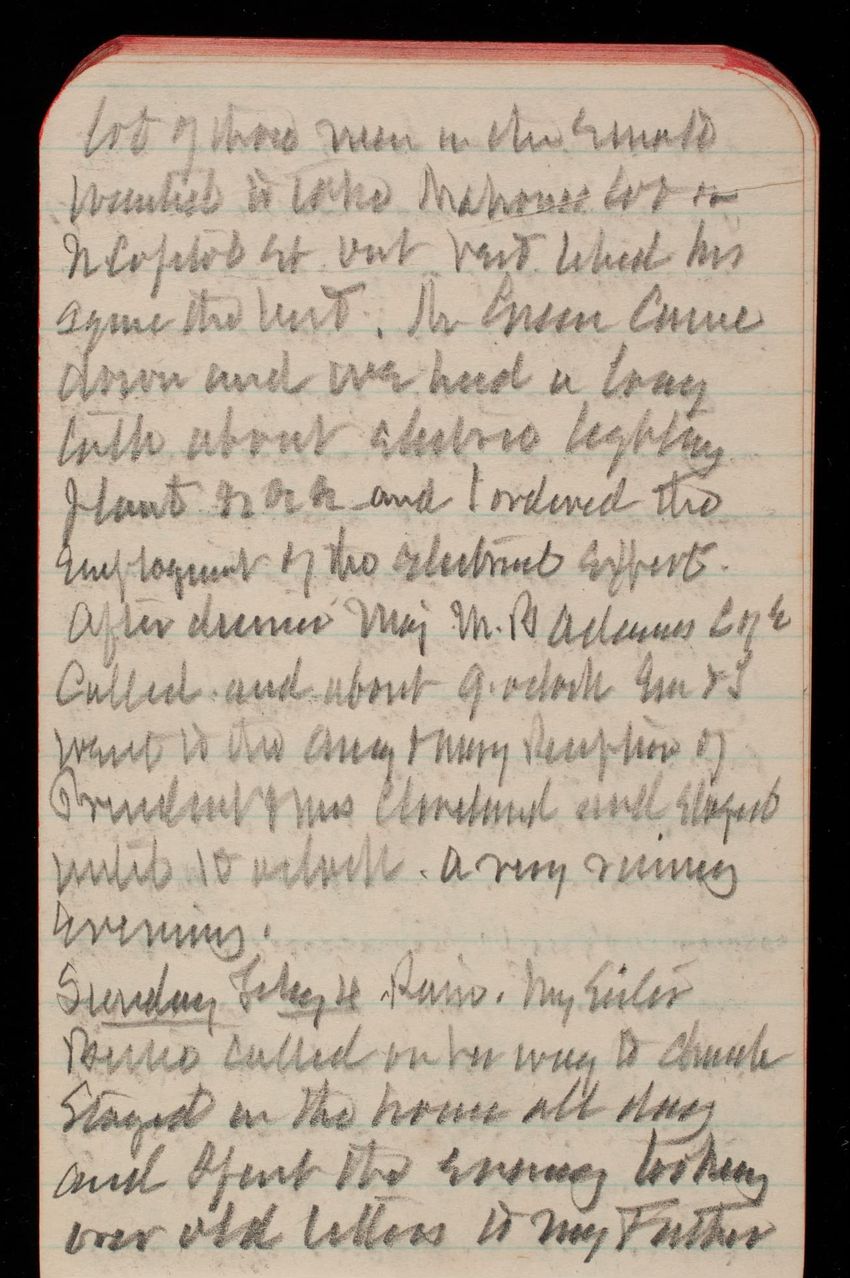 lot of those men in the Senate
wanted to take Mahones lot on
N Capitol St. but Vest liked his
Came
down and we had a long
talk about electric lighting
plant &c &c &c and I ordered the
employment of the electrical expert.
After dinner Maj M. B Adams C of E
Called and about 9. oclock Em & I
went to the Army & Navy Reception of
President & Mrs Cleveland and stayed
until 10 oclock. A very rainy
evening.
Sunday Feby 4 Rain. My Sister
called on her way to church
Stayed in the house all day
and spent the evening looking
over old letters to my Father